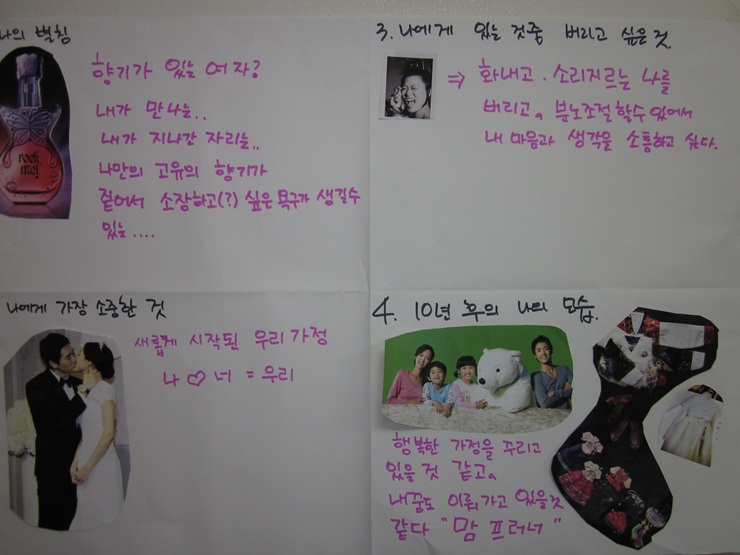 나의 별칭
rock me!
향기가 있는 여자?
내가 만나는..
내가 지나간 자리는..
나만의 고유의 향기가
짙어서 소장하고(?) 싶은 욕구가 생길수
있는....
3. 나에게 있는 것중 버리고 싶은 것.
⇒ 화내고. 소리지르는 나를
버리고, 분노조절 할수 있어서
내 마음과 생각을 소통하고 싶다.
나에게 가장 소중한 것
새롭게 시작된 우리 가정
나 ♡ 너 = 우리
4. 10년 후의 나의 모습.
행복한 가정을 꾸리고
있을 것 같고,
내꿈도 이뤄가고 있을것
같다 "맘 프러너"